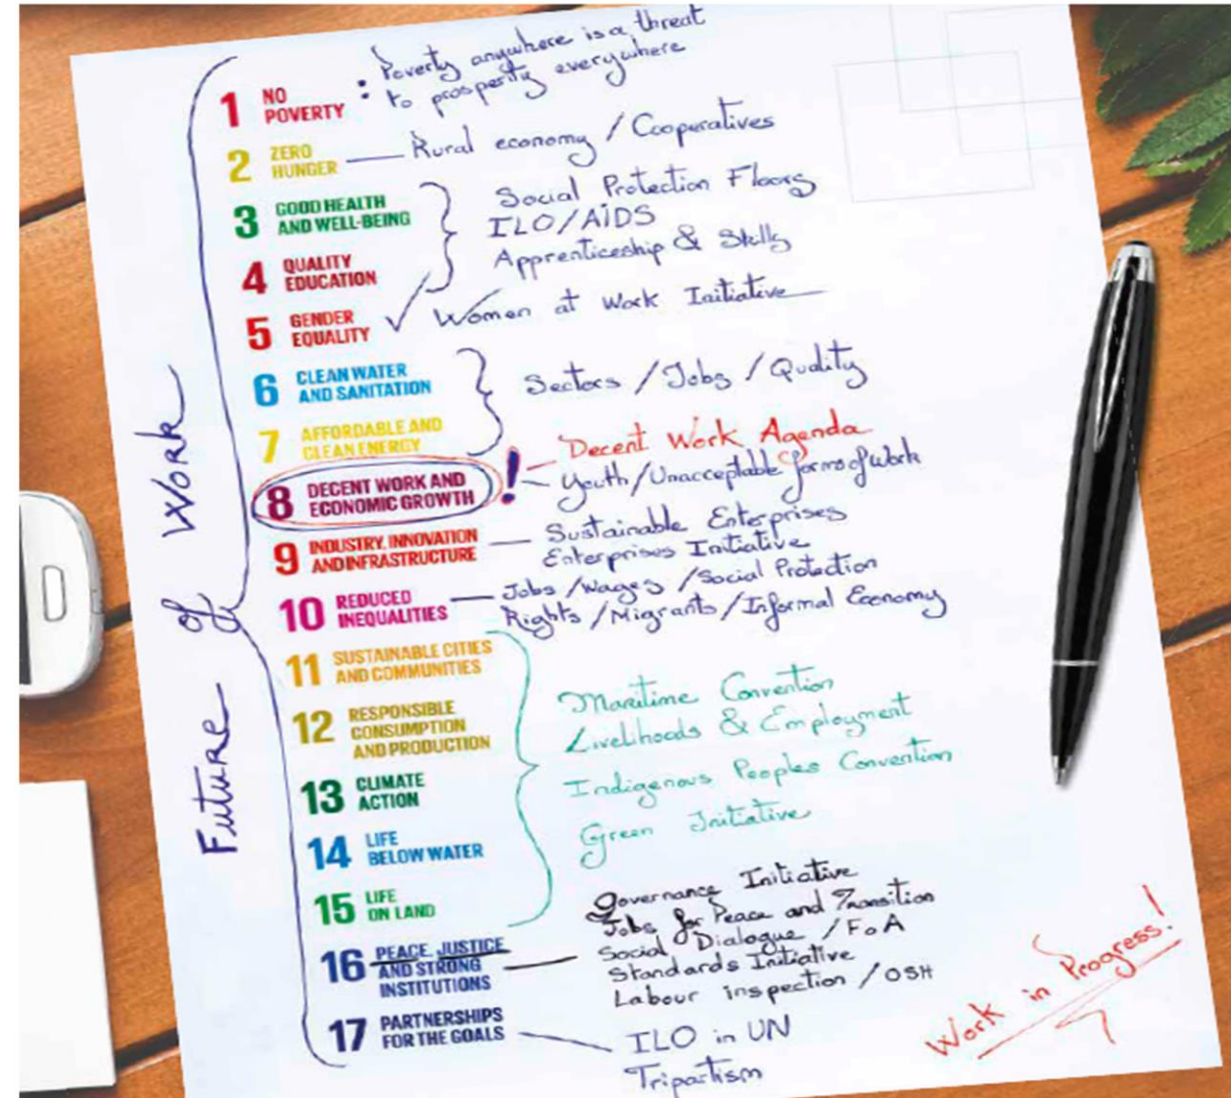 Future of Work
1 NO POVERTY : Poverty anywhere is a threat
to prosperity everywhere
2 ZERO HUNGER — Rural economy / Cooperatives
3 GOOD HEALTH
AND WELL-BEING
Social Protection Floors
ILO/AIDS
4 QUALITY
EDUCATION
Apprenticeship & Skills
5 GENDER
EQUALITY
Women at Work Initiative
6 CLEAN WATER
AND SANITATION
Sectors / Jobs / Quality
7 AFFORDABLE AND
CLEAN ENERGY
8 DECENT WORK AND
ECONOMIC GROWTH
! – Decent Work Agenda
– Youth/Unacceptable forms of Work
9 INDUSTRY, INNOVATION
AND INFRASTRUCTURE
— Sustainable Enterprises
Enterprises Initiative
10 REDUCED
INEQUALITIES
— Jobs / Wages / Social Protection
Rights / Migrants / Informal Economy
11 SUSTAINABLE CITIES
AND COMMUNITIES
12 RESPONSIBLE
CONSUMPTION
AND PRODUCTION
13 CLIMATE
ACTION
14 LIFE
BELOW WATER
15 LIFE
ON LAND
Maritime Convention
Livelihoods & Employment
Indigenous Peoples Convention
Green Initiative
16 PEACE, JUSTICE
AND STRONG
INSTITUTIONS
Governance Initiative
Jobs for Peace and Transition
Social Dialogue / FoA
Standards Initiative
Labour inspection / OSH
17 PARTNERSHIPS
FOR THE GOALS
ILO in UN
Tripartism
Work in Progress!